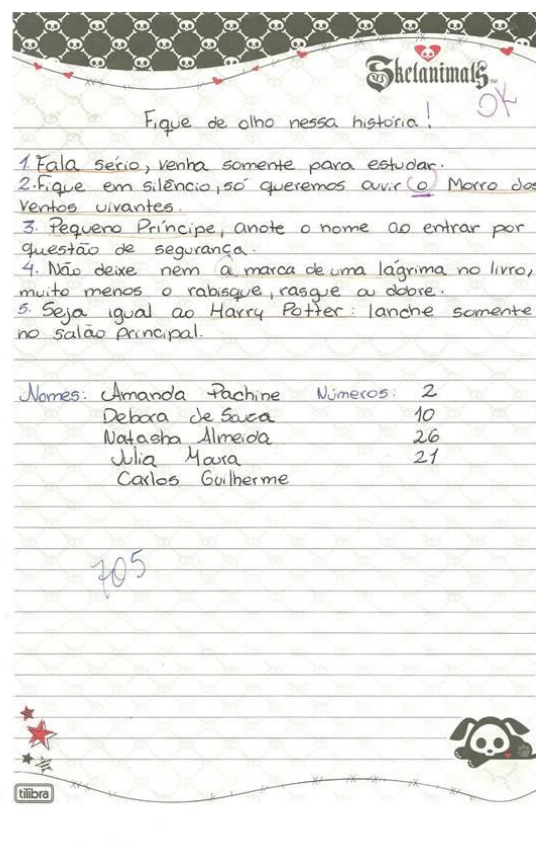 Skelanimals
OK
Fique de olho nessa história!
1. Fala sério, venha somente para estudar.
2. Fique em silêncio, só queremos ouvir o Morro dos
ventos uivantes.
3. Pequeno Príncipe, anote o nome ao entrar por
questão de segurança.
4. Não deixe nem a marca de uma lágrima no livro,
muito menos o rabisque, rasgue ou dobre.
5. Seja igual ao Harry Potter: lanche somente
no salão principal.
Nomes: Amanda Pachine Números: 2
Debora de Souza 10
Natasha Almeida 26
Julia Moura 21
Carlos Guilherme
705
tilibra